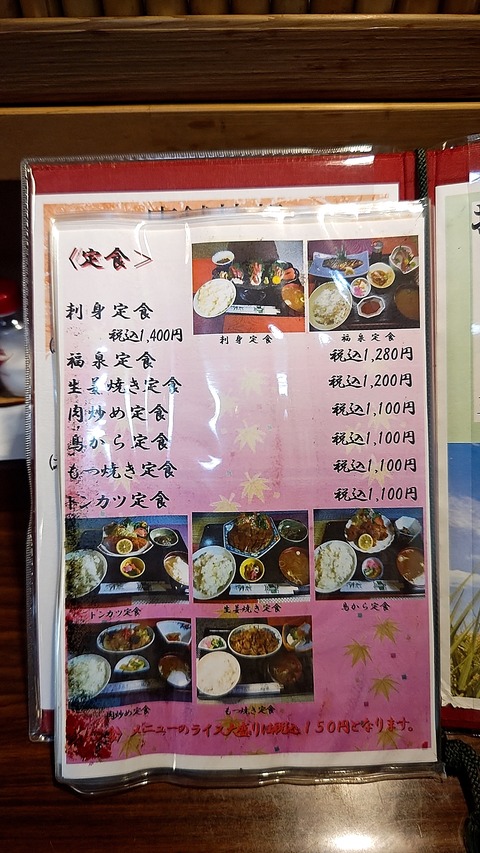 《定食》
刺身定食
税込1,400円
刺身定食
福泉定食
福泉定食
税込1,280円
生姜焼き定食
税込1,200円
肉炒め定食
税込1,100円
鳥から定食
税込1,100円
もつ焼き定食
税込1,100円
トンカツ定食
税込1,100円
トンカツ定食
生姜焼き定食
鳥から定食
肉炒め定食
もつ焼き定食
メニューのライス大盛りは税込150円となります。